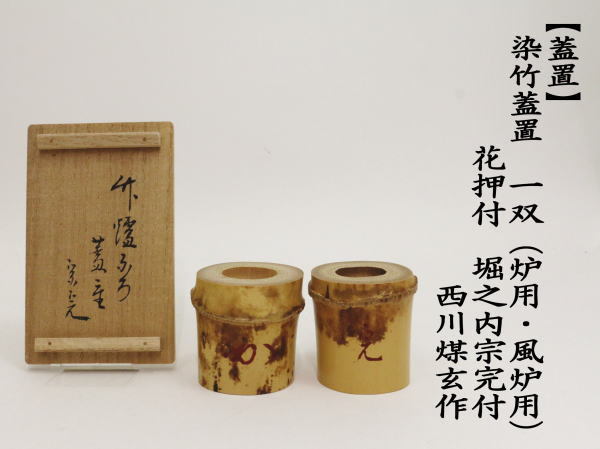 【蓋置】
染竹蓋置 一双(炉用・風炉用)
花押付 堀之内宗完付
西川煤玄作
蓋置
宗完